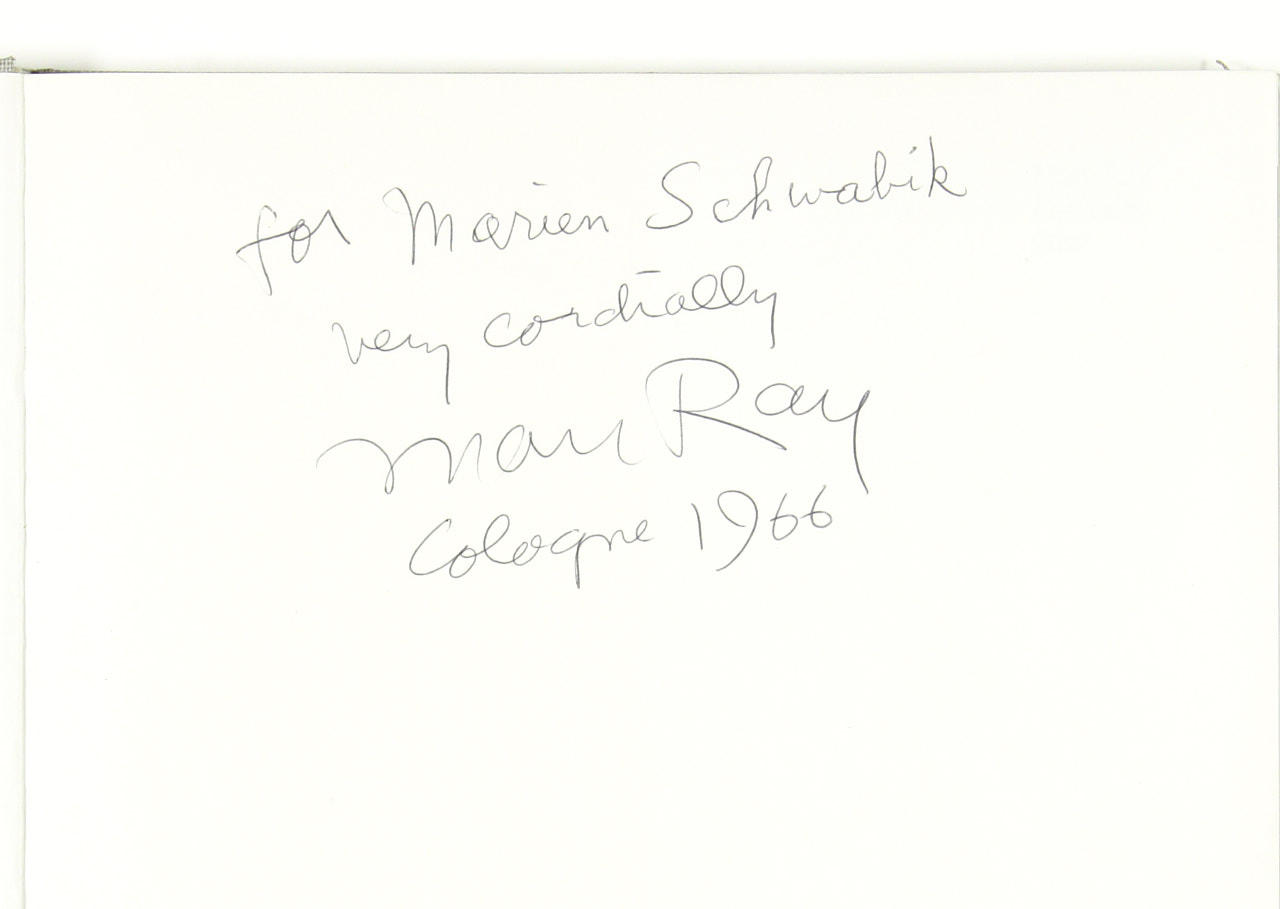 for Marien Schwabik
very cordially
Man Ray
Cologne 1966